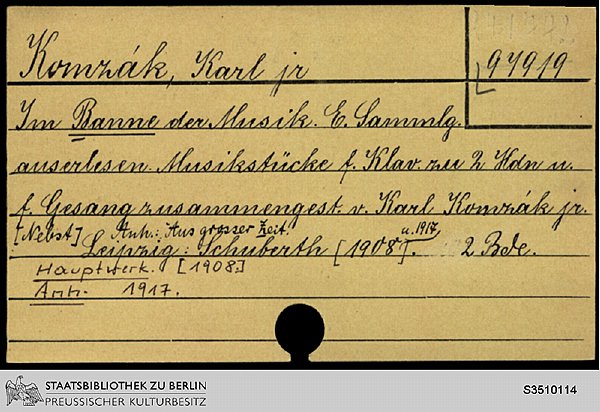 Komzák, Karl jr
97919
Im Banne der Musik. E. Sammlg.
auserlesen. Musikstücke f. Klav. zu 2 Hdn u.
f. Gesang zusammengest. v. Karl Komzák jr.
[Nebst] Anh.: Aus grosser Zeit.
Leipzig: Schuberth [1908] u. 1917. 2 Bde.
Hauptwerk. [1908.]
Anh. 1917.
STAATSBIBLIOTHEK ZU BERLIN
PREUSSISCHER KULTURBESITZ
S3510114